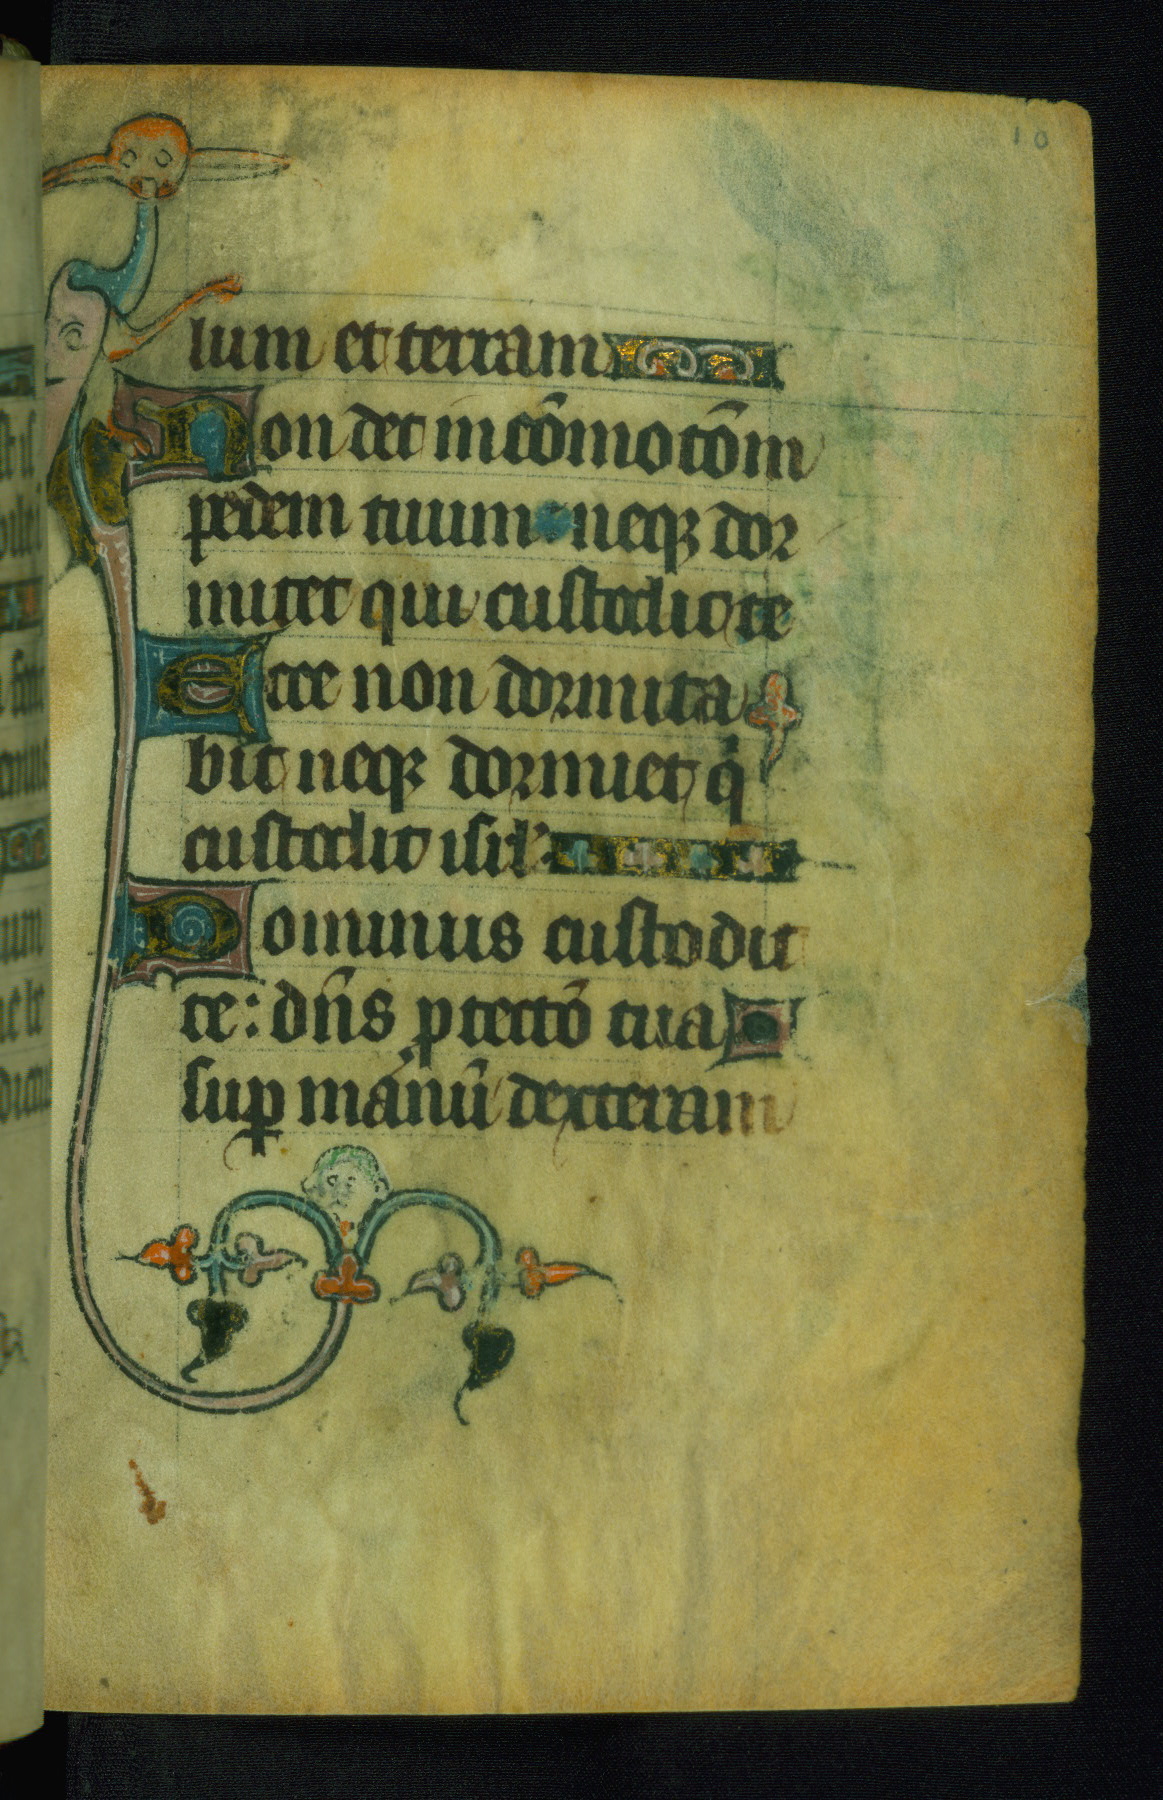 10
lum et terram
Non det in cōmotōm
pedem tuum neqꝫ dor
mitet qui custodit te
Ecce non dormita
bit neqꝫ dormiet q̄
custodit isrl'
Dominus custodit
te: dn̄s ꝓtectō tua
suꝑ manū dexteram